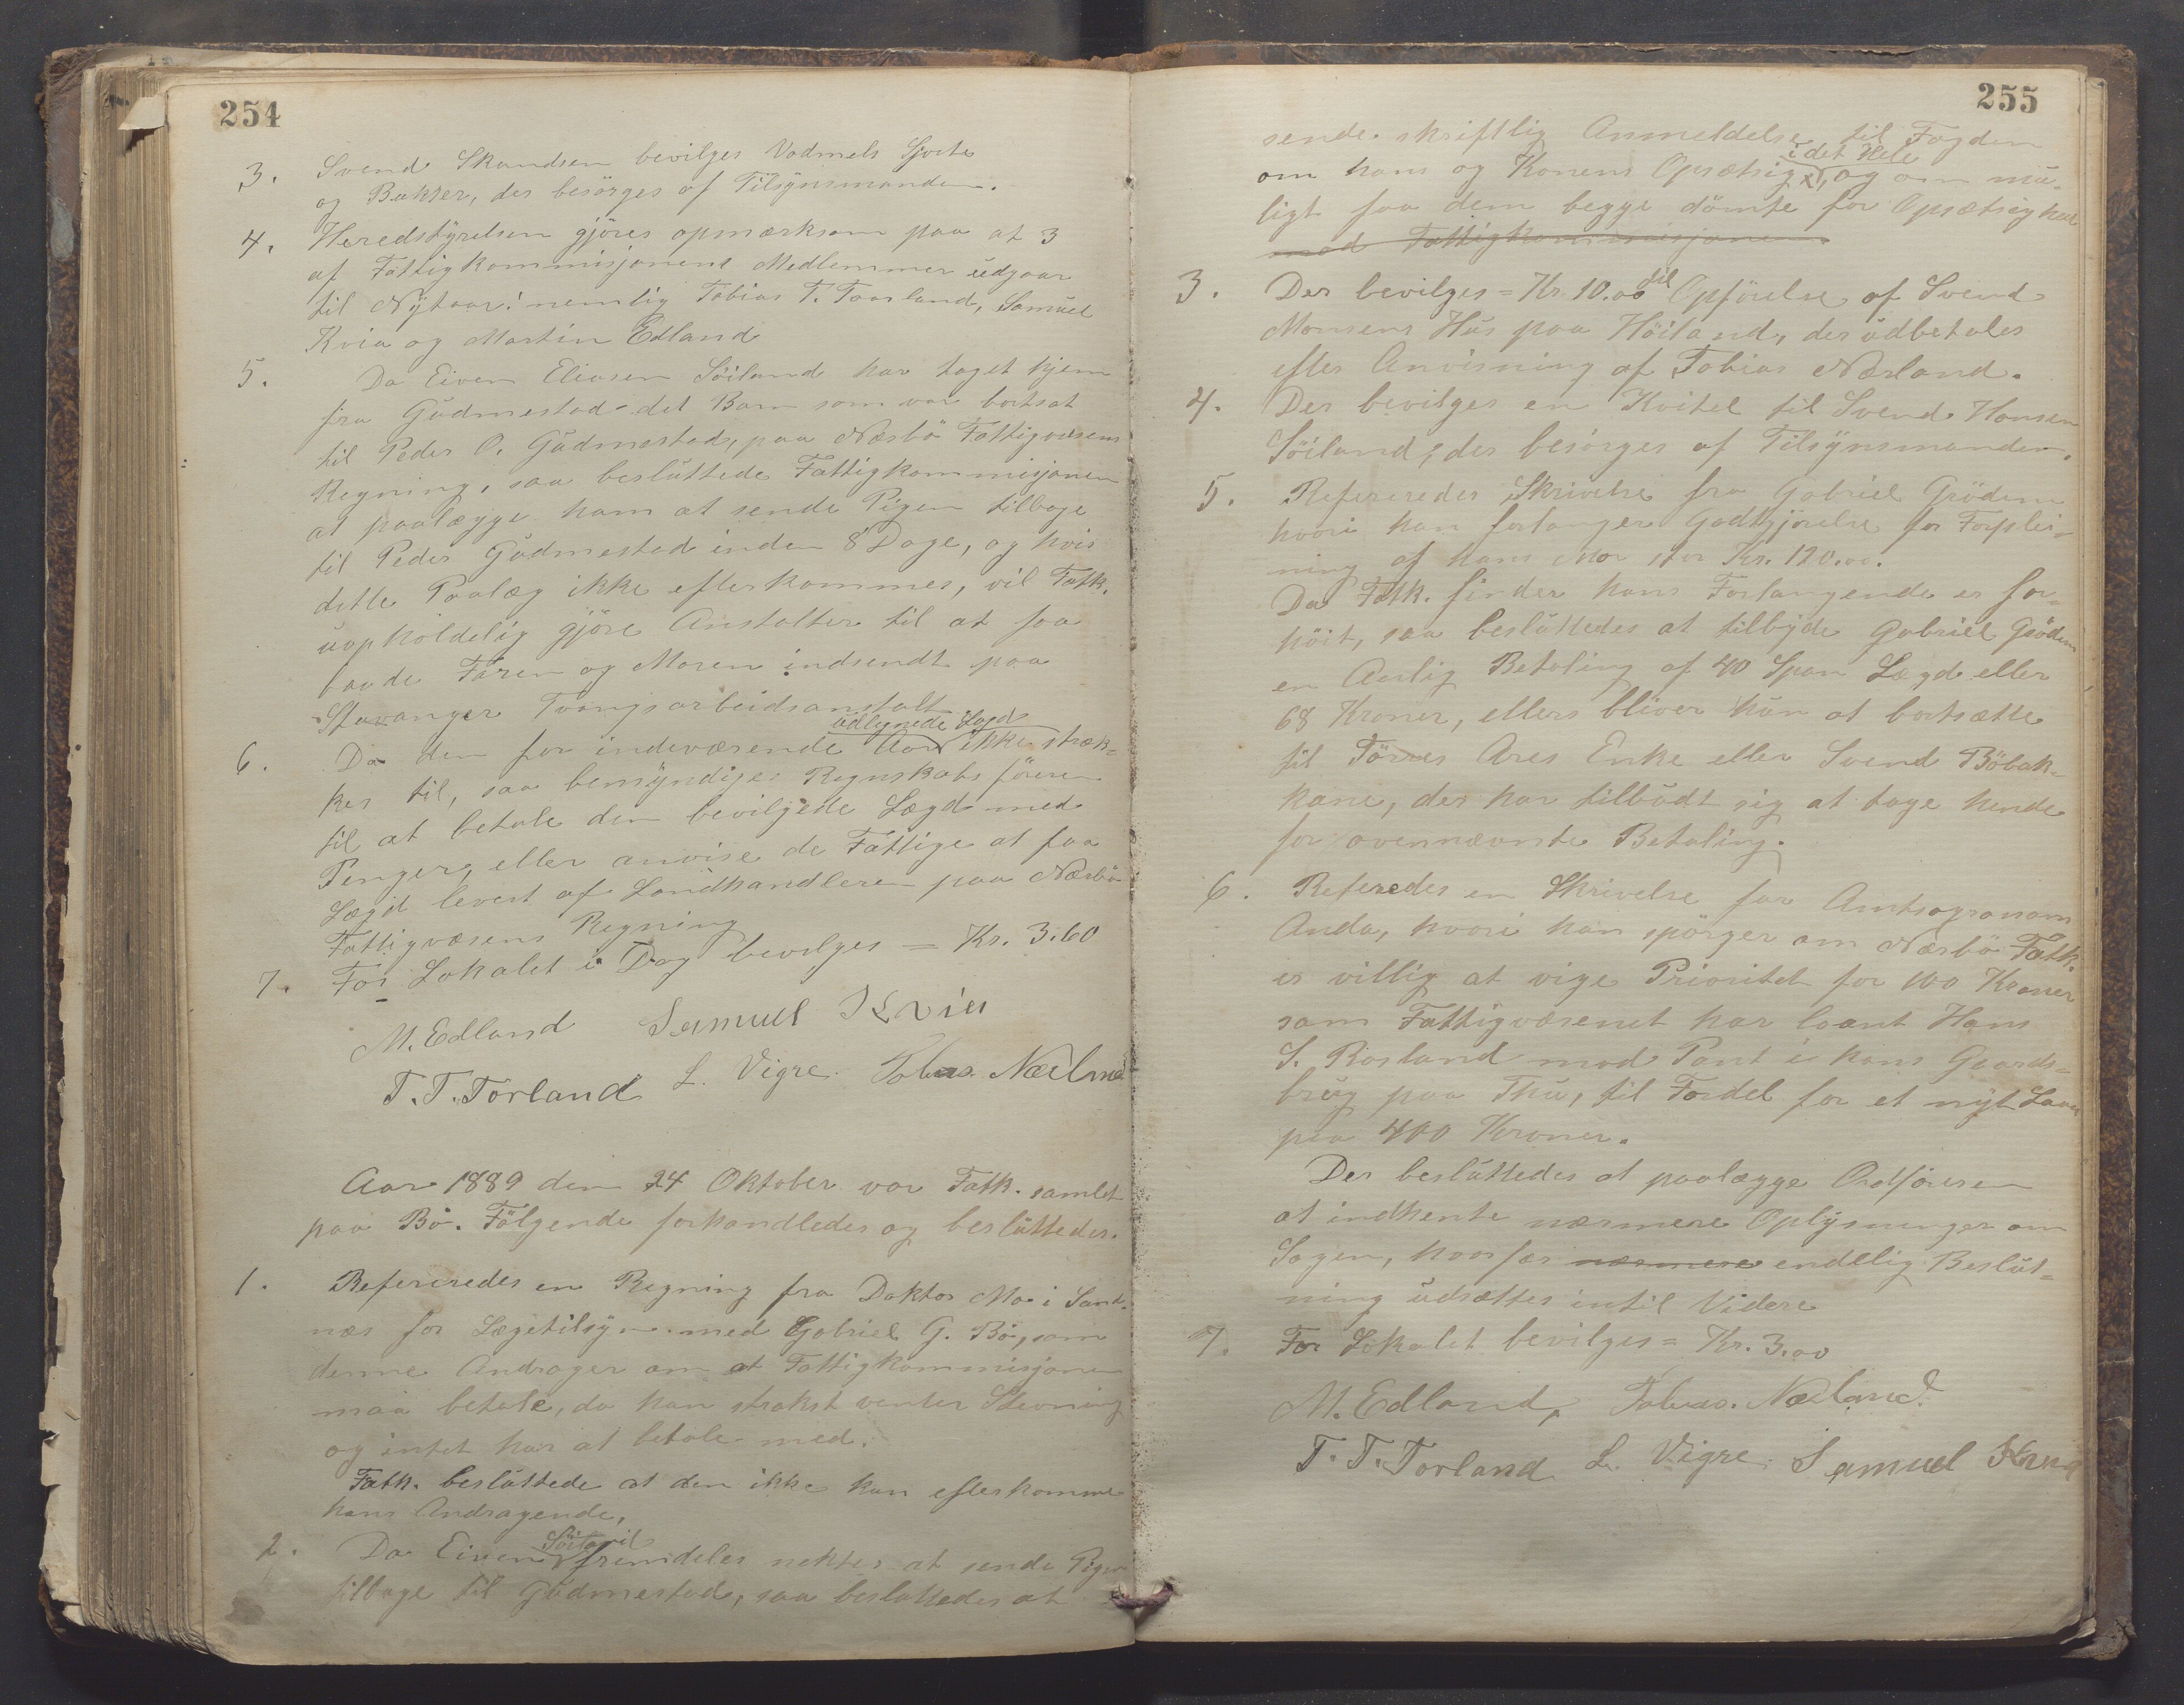 254
3. Svend Skandsen bevilges Vadmels Sjorte
og Bukser, der besörges af Tilsynsmanden.
4. Heredstyrelsen gjöres opmærksom paa at 3
af Fattigkommisjonens Medlemmer udgaar
til Nytaar: nemlig Tobias T. Taarland, Samuel
Kvia og Martin Edland
5. Da Eiven Eliasen Söiland har taget hjem
fra Gudmestad det Barn som var bortsat
til Peder O. Gudmestad, paa Næsbö Fattigvæsens
Regning, saa besluttede Fattigkommisjonen
at paalægge ham at sende Pigen tilbage
til Peder Gudmestad inden 8 Dage, og hvis
dette Paalæg ikke efterkommes, vil Fatk.
uopholdelig gjöre Anstalter til at faa
baade Faren og Moren indsendt paa
Stavanger Tvangsarbeidsanstalt
6. Da den for indeværende Aar udlignede Lægd ikke stræk-
ker til, saa bemyndiges Regnskabsföreren
til at betale den bevilgede Lægd med
Penger, eller anvise de Fattige at faa
Lægd levert af Landhandleren paa Næsbö
Fattigvæsens Regning
7. For Lokalet i Dag bevilges = Kr. 3.60
M. Edland Samuel Kvia
T. T. Torland L. Vigre. Tobias. Nærland
Aar 1889 den 24 Oktober var Fatk. samlet
paa Bö. Fölgende forhandledes og besluttedes.
1. Refereredes en Regning fra Doktor Mo i Sand-
næs for Lægetilsyn med Gabriel G. Bö, som
denne Andrager om at Fattigkommisjonen
maa betale, da han strakst venter Stevning
og intet har at betale med.
Fatk. besluttede at den ikke kan efterkomme
hans Andragende,
2. Da Eiven Söiland fremdeles nekter at sende Pigen
tilbage til Gudmestad, saa besluttedes at
255
sende skriftlig Anmeldelse til Fogden
om hans og Konens Opsætsig i det Hele, og om mu-
ligt faa dem begge dömte for Opsætsighed
mod Fattigkommisjonen.
3. Der bevilges = Kr. 10.00 til Opförelse af Svend
Monsens Hus paa Höiland, der udbetales
efter Anvisning af Tobias Nærland.
4. Der bevilges en Kvitel til Svend Hansen
Söiland, der besörges af Tilsynsmanden.
5. Refereredes Skrivelse fra Gabriel Grödem
hvori han forlanger Godtgjörelse for Forplei-
ning af hans Mor stor Kr. 120.00.
Da Fatk. finder hans Forlangende er for-
höit, saa besluttedes at tilbyde Gabriel Grödem
en Aarlig Betaling af 40 Span Lægd eller
68 Kroner, ellers bliver hun at bortsætte
til Törres Ares Enke eller Svend Böbak-
kane, der har tilbudt sig at tage hende
for ovennævnte Betaling.
6. Referedes en Skrivelse far Amtsagronom
Anda, hvori han spörger om Næsbö Fatk.
er villig at vige Prioritet for 100 Kroner
som Fattigvæsenet har laant Hans
S. Rosland mod Pant i hans Gaards-
brug paa Thu, til Fordel for et nyt Laan
paa 400 Kroner.
Der besluttedes at paalægge Ordföreren
at indhente nærmere Oplysninger om
Sagen, hvorfor nærmere endelig Beslut-
ning udsættes intil Videre
7. For Lokalet bevilges = Kr. 3.00
M. Edland, Tobias. Nærland.
T. T. Torland L. Vigre. Samuel Kvia